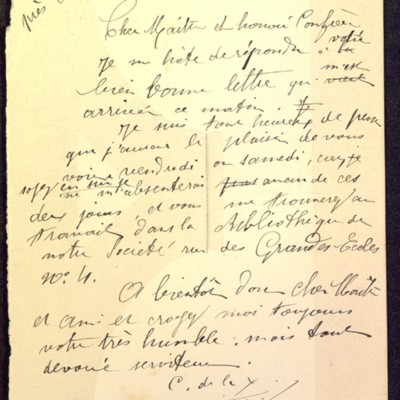 près
Cher Maître et honoré Confrère
Je me hâte de répondre à votre
bien bonne lettre qui m'est
arrivée ce matin.
Je suis tout heureux de penser
que j'aurai le plaisir de vous
voir vendredi ou samedi, car je
soyez en sûr je
ne m'absenterai pas aucun de ces
deux jours et vous me trouverez au
travail dans la Bibliothèque de
notre Société rue des Grandes-Ecoles
n° 4.
A bientôt donc Cher Maître
et ami et croyez moi toujours
votre très humble mais tout
dévoué serviteur.
C. de la